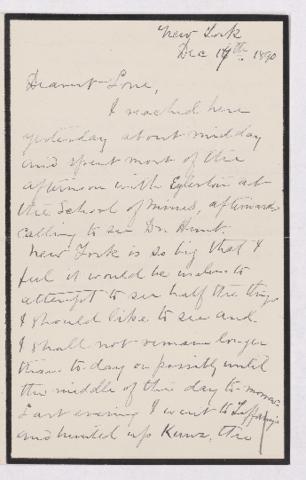 New York
Dec 17th 1890
Dearest Love,
I reached here
yesterday about midday
and spent most of the
afternoon with Egleston at
the School of Mines, afterwards
calling to see Dr. Hunt.
New York is so big that I
feel it would be useless to
attempt to see half the things
I should like to see and
I shall not remain longer
than to-day or possibly until
the middle of the day to-morrow.
Last evening I went to Tiffany's
and hunted up Kunz, the